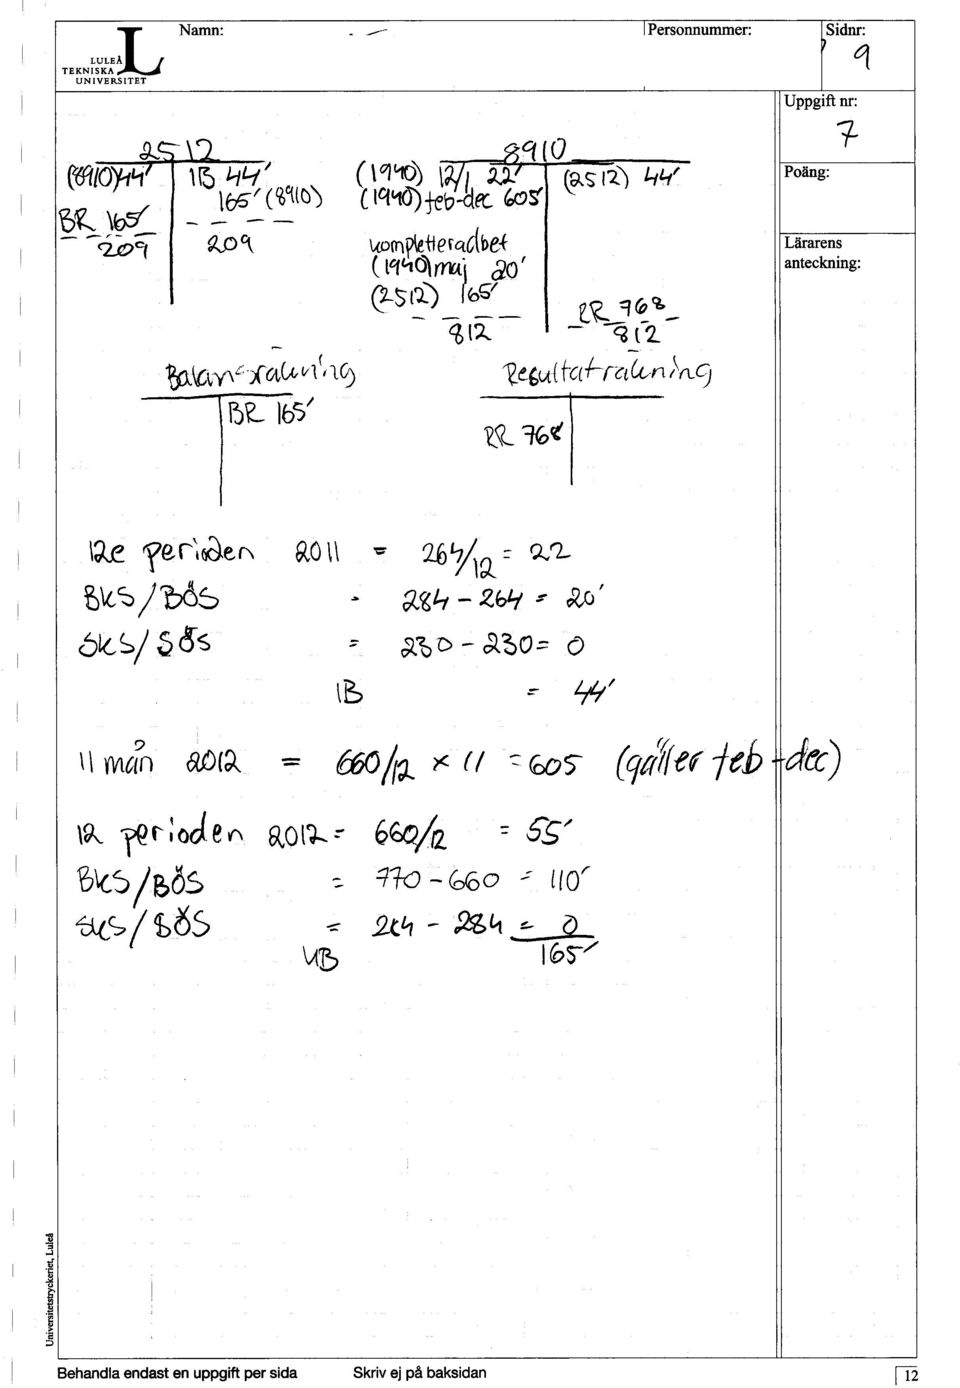 Namn:
Personnummer:
Sidnr:
9
LULEÅ
TEKNISKA
UNIVERSITET
L
Uppgift nr:
7
Poäng:
Lärarens
anteckning:
2512
(8910)44' IB 44'
165' (8910)
BR 165'
209 209
8910
(1940) 12/1 22' (2512) 44'
(1940) feb-dec 605'
kompletteradbet
(1940) maj 20'
(2512) 165'
RR 768
812 812
Balansräkning
BR 165'
Resultaträkning
RR 768'
12e perioden 2011 = 264/12 = 22
BKS/BÖS = 284 - 264 = 20'
SKS/SÖS = 230 - 230 = 0
IB = 44'
11 mån 2012 = 660/12 × 11 = 605 (gäller feb-dec)
12 perioden 2012 = 660/12 = 55'
BKS/BÖS = 770 - 660 = 110'
SKS/SÖS = 284 - 284 = 0
UB 165'
Universitetstryckeriet, Luleå
Behandla endast en uppgift per sida Skriv ej på baksidan
12